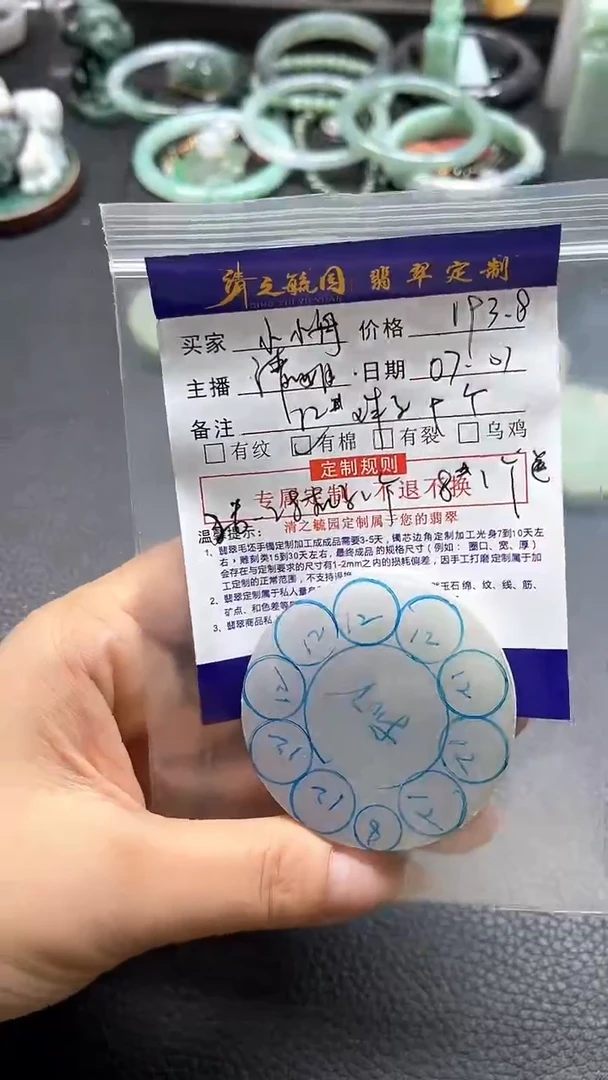 清之毓园 翡翠定制
QING ZHI YU YUAN
买家 小小姆 价格 193.8
主播 清 日期 07.01
备注 12# 珠子十个
□有纹 □有棉 □有裂 □乌鸡
定制规则
专属定制 不退不换
8# 1个
温馨提示：清之毓园定制属于您的翡翠
1、翡翠毛坯手镯定制加工成成品需要3-5天，镯芯边角定制加工光身7到10天左
右，雕刻类15到30天左右，最终成品的规格尺寸（例如：圈口、宽、厚）
会存在与定制要求的尺寸有1-2mm之内的损耗偏差，因手工打磨定制属于加
工定制的正常范围，不支持退换
2、翡翠定制属于私人量身 然玉石绵、纹、线、筋、
矿点、和色差等
3、翡翠商品私
12 12 12
12 12
12 12
12 12
8